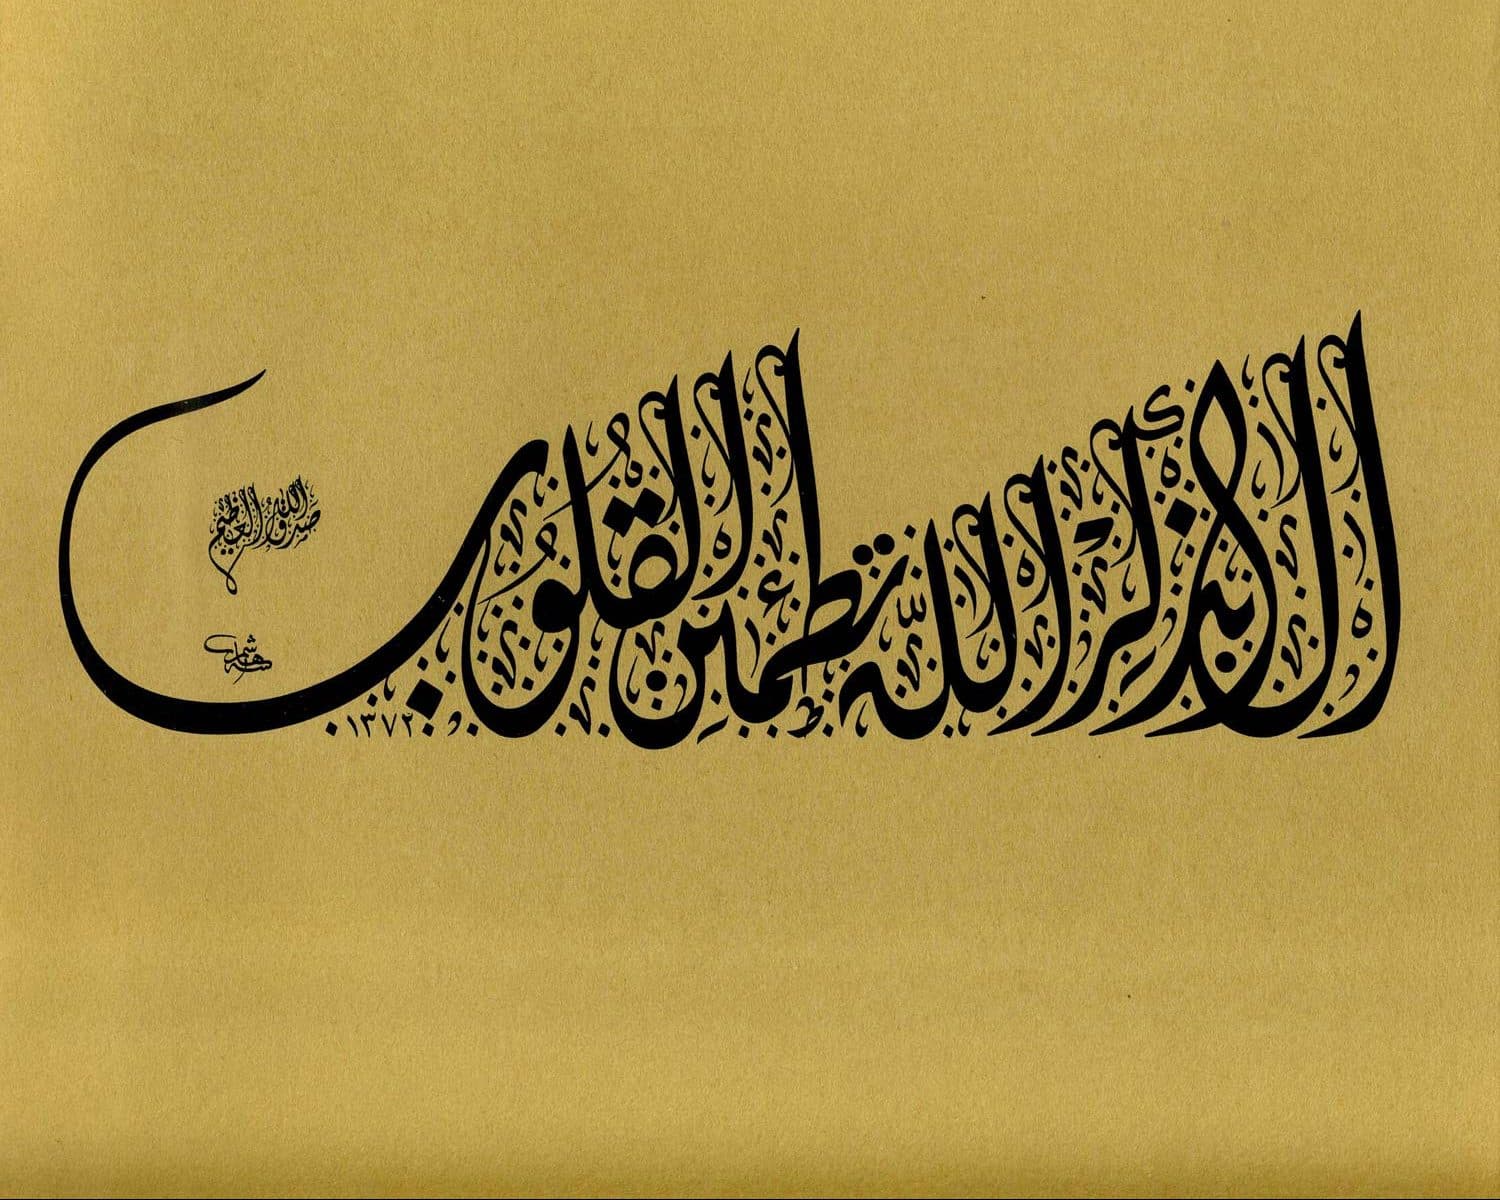 ألا بذكر الله تطمئن القلوب
صدق الله العظيم
هاشم
١٣٧٢